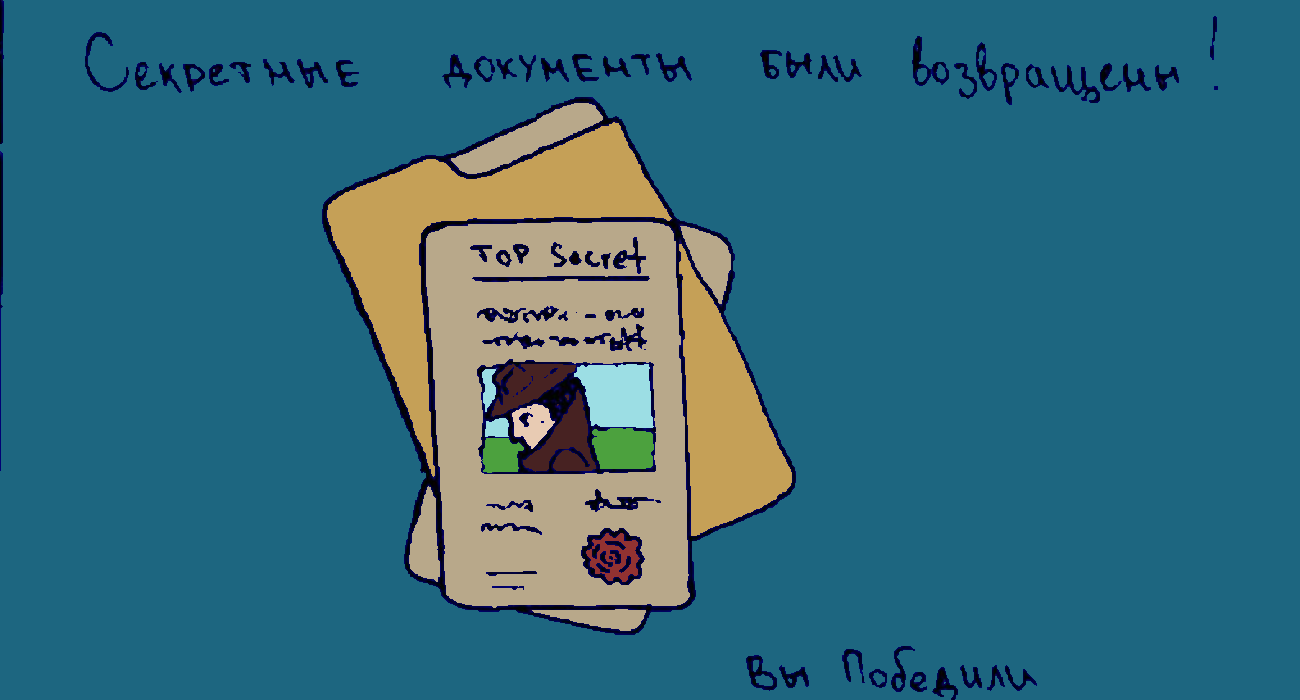 Секретные документы были возвращены!
TOP Secret
Вы Победили